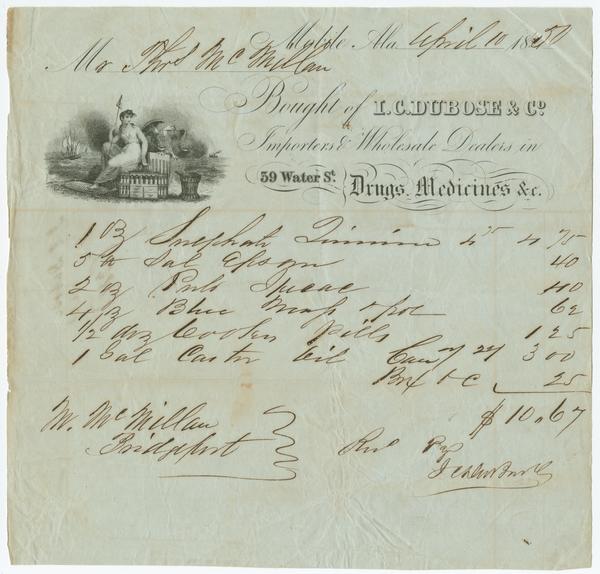 Mobile Ala April 10 1850
Mr Thos McMillan
Bought of I.C. DUBOSE & Co.
Importers & Wholesale Dealers in
39 Water St. Drugs, Medicines &c.
1 oz Sulphate Quinine 4 75 4 75
5 lb Sal Epsom 40
2 oz Pulv Ipecac 40
4 oz Blue Mass & pot 62
1/2 doz Cooks Pills 1 25
1 Gal Castor Oil Can 3 00
Box & C 25
$ 10.67
M. McMillan
Bridgeport
Recd Pay